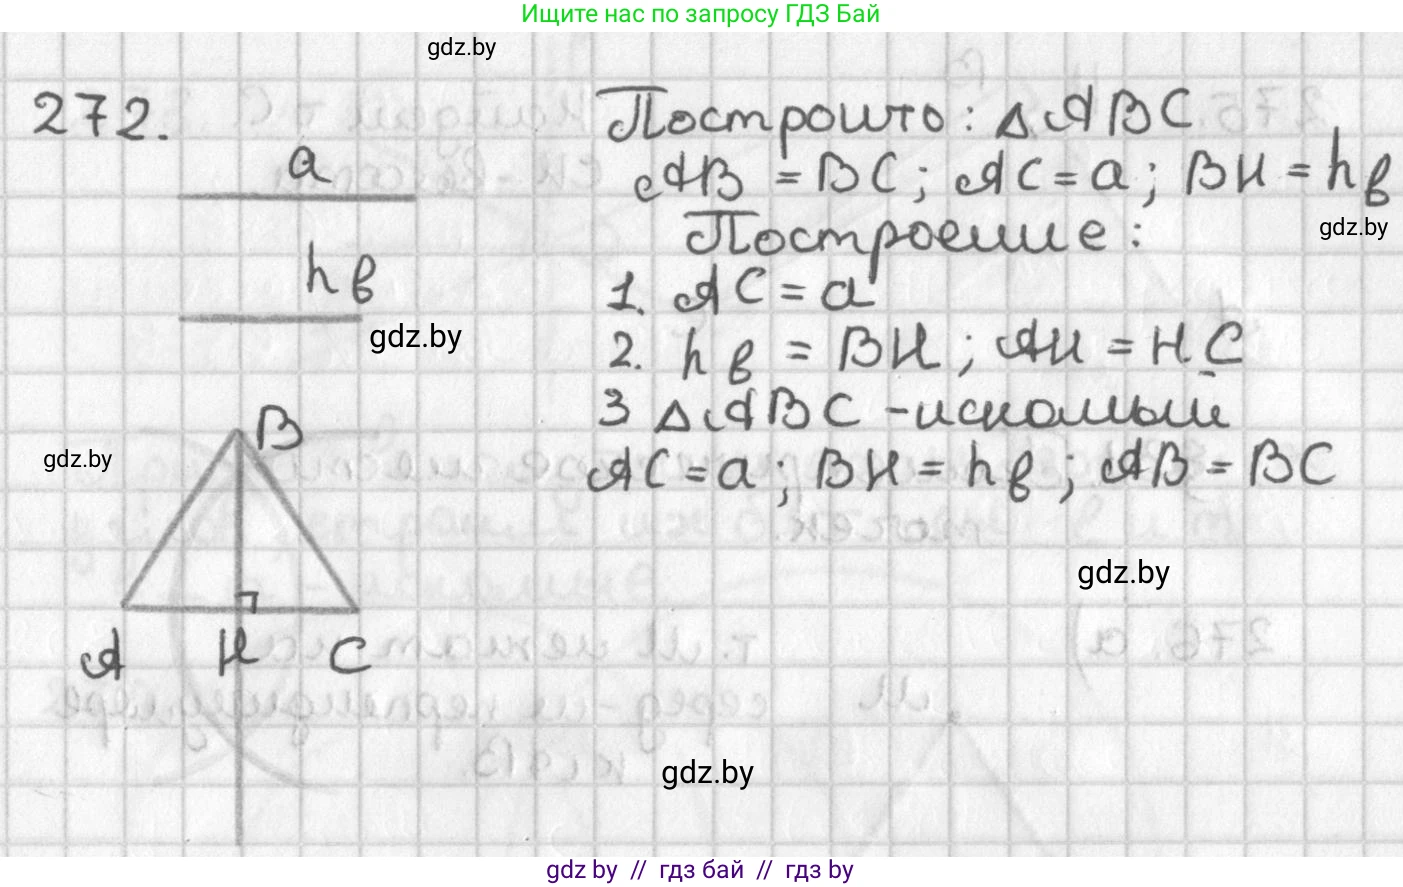 Ищите нас по запросу ГДЗ Бай
gdz.by
272.
a
h в
gdz.by
B
gdz.by
A H C
Построить: △ABC
AB = BC; AC = a; BH = h в
gdz.by
Построение:
1. AC = a
2. h в = BH; AH = HC
3 △ABC - искомый
AC = a; BH = h в; AB = BC
gdz.by
gdz.by
gdz by // гдз бай // гдз by